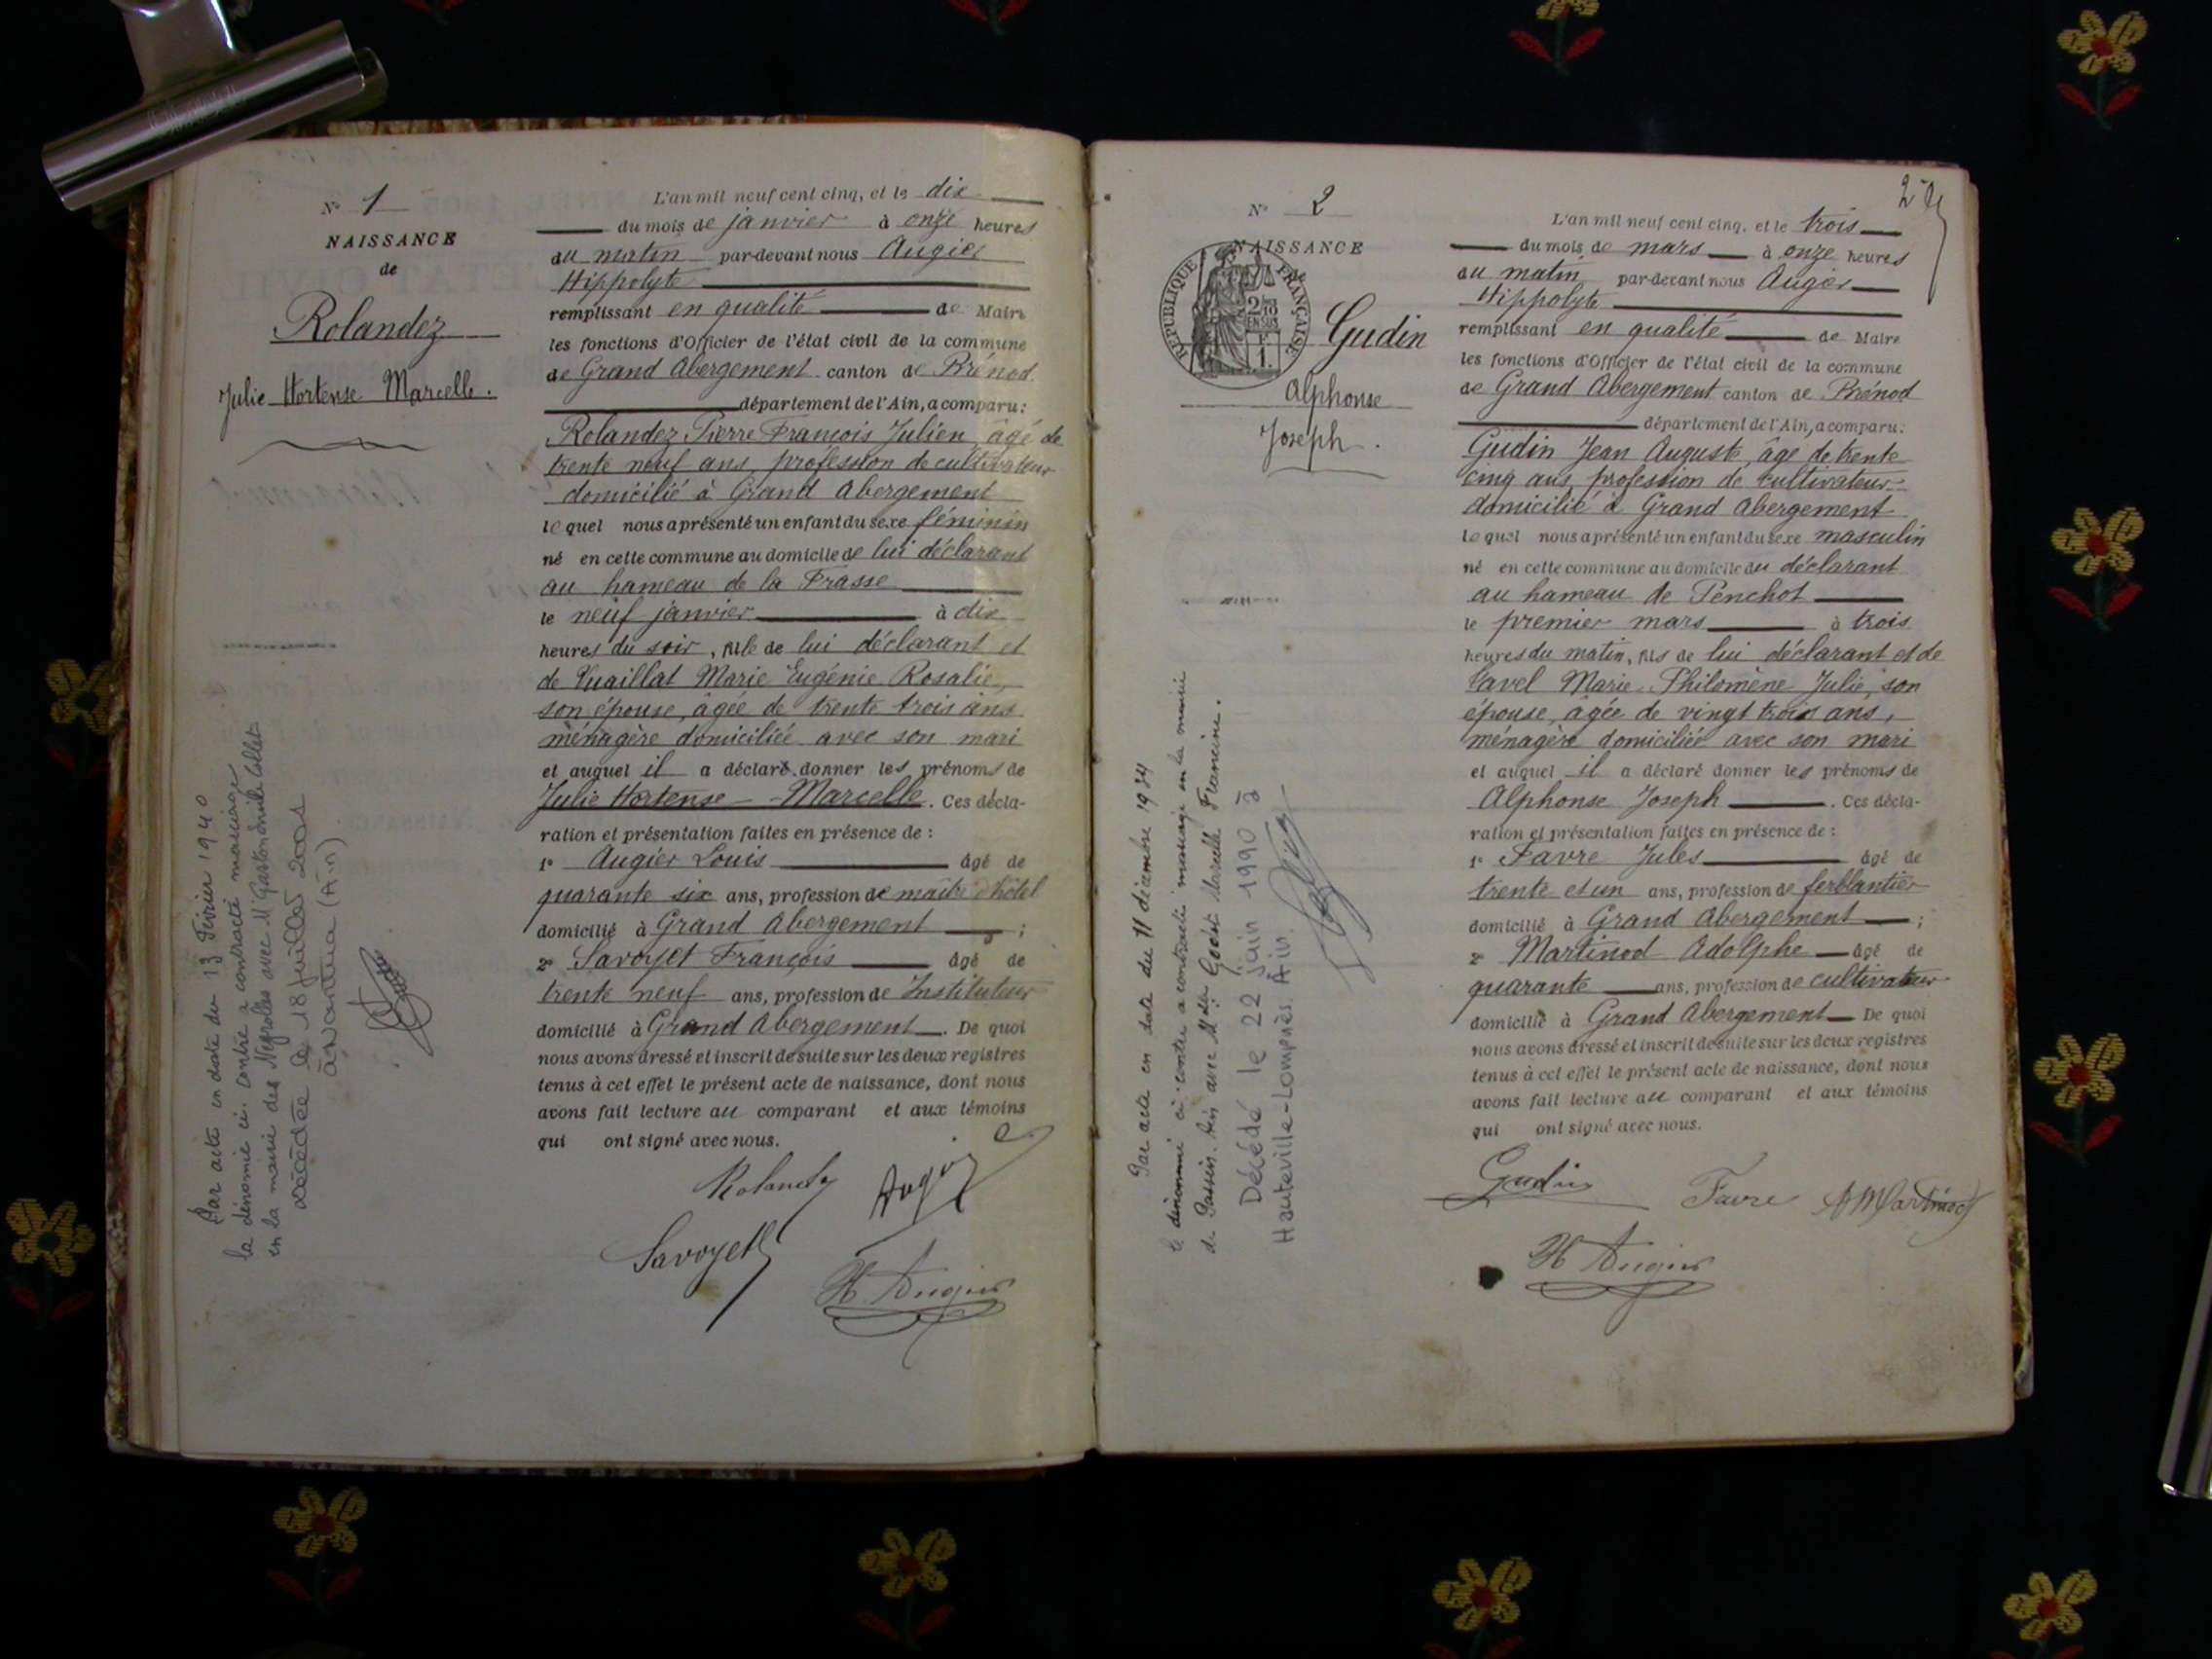 N° 1
NAISSANCE
de
Rolandez
Julie Hortense Marcelle.
L'an mil neuf cent cinq, et le dix
du mois de janvier à onze heures
du matin par-devant nous Augier
Hippolyte
remplissant en qualité de Maire
les fonctions d'Officier de l'état civil de la commune
de Grand Abergement canton de Brénod
département de l'Ain, a comparu:
Rolandez Pierre François Julien, âgé de
trente neuf ans, profession de cultivateur
domicilié à Grand Abergement
lequel nous a présenté un enfant du sexe féminin
né en cette commune au domicile de lui déclarant
au hameau de la Frasse
le neuf janvier à dix
heures du soir, fille de lui déclarant et
de Vuaillat Marie Eugénie Rosalie,
son épouse, âgée de trente trois ans
ménagère domiciliée avec son mari
et auquel il a déclaré donner les prénoms de
Julie Hortense Marcelle. Ces décla-
ration et présentation faites en présence de :
1° Augier Louis âgé de
quarante six ans, profession de maître d'hôtel
domicilié à Grand Abergement ;
2° Savoyet François âgé de
trente neuf ans, profession de Instituteur
domicilié à Grand Abergement. De quoi
nous avons dressé et inscrit de suite sur les deux registres
tenus à cet effet le présent acte de naissance, dont nous
avons fait lecture au comparant et aux témoins
qui ont signé avec nous.
Rolandez Augier
Savoyet
H. Augier
Par acte en date du 13 Février 1940
la dénommée ci-contre a contracté mariage
en la mairie des Neyrolles avec M. Gaston Emile Collet
décédée le 18 juillet 2001
à Nantua (Ain)
2
N° 2
NAISSANCE
de
RÉPUBLIQUE FRANÇAISE
2/10
EN SUS
F.
1.
Gudin
Alphonse
Joseph.
L'an mil neuf cent cinq, et le trois
du mois de mars à onze heures
du matin par-devant nous Augier
Hippolyte
remplissant en qualité de Maire
les fonctions d'Officier de l'état civil de la commune
de Grand Abergement canton de Brénod
département de l'Ain, a comparu:
Gudin Jean Auguste, âgé de trente
cinq ans, profession de cultivateur
domicilié à Grand Abergement
lequel nous a présenté un enfant du sexe masculin
né en cette commune au domicile du déclarant
au hameau de Penchot
le premier mars à trois
heures du matin, fils de lui déclarant et de
Tavel Marie Philomène Julie, son
épouse, âgée de vingt trois ans,
ménagère domiciliée avec son mari
et auquel il a déclaré donner les prénoms de
Alphonse Joseph. Ces décla-
ration et présentation faites en présence de :
1° Favre Jules âgé de
trente et un ans, profession de ferblantier
domicilié à Grand Abergement ;
2° Martinod Adolphe âgé de
quarante ans, profession de cultivateur
domicilié à Grand Abergement De quoi
nous avons dressé et inscrit de suite sur les deux registres
tenus à cet effet le présent acte de naissance, dont nous
avons fait lecture au comparant et aux témoins
qui ont signé avec nous.
Gudin Favre A Martinod
H Augier
Par acte en date du 11 décembre 1934
le dénommé ci-contre a contracté mariage en la mairie
de Passin avec Mlle Marcelle Francine.
Décédé le 22 juin 1990 à
Hauteville-Lompnès. Ain.